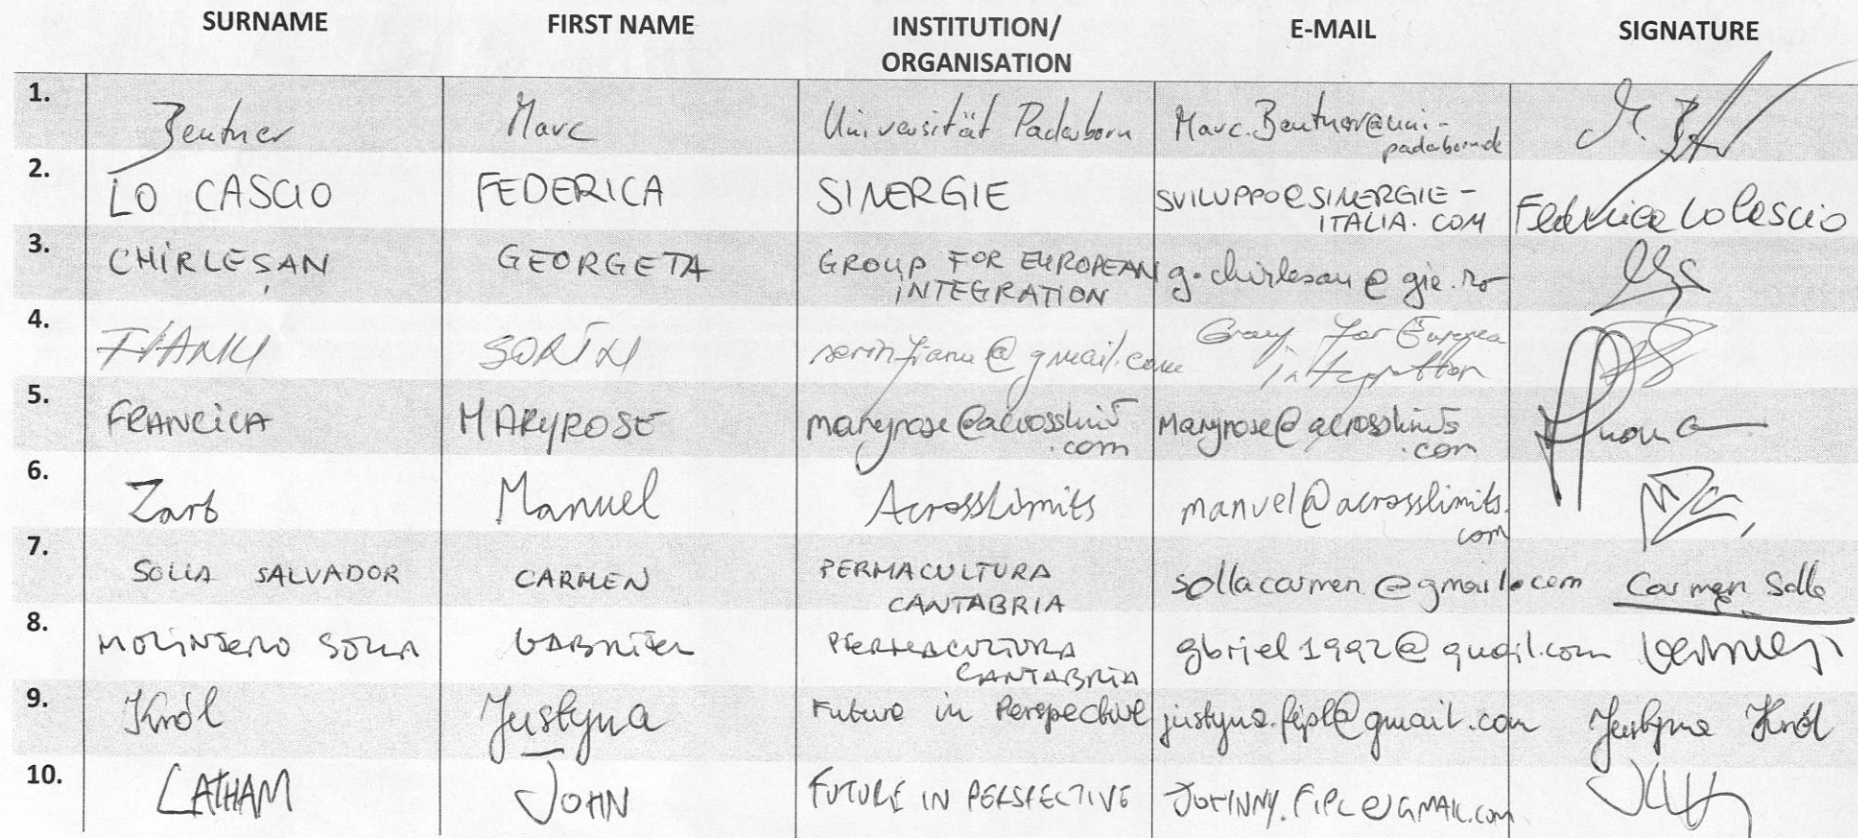 SURNAME FIRST NAME INSTITUTION/ E-MAIL SIGNATURE
ORGANISATION
1. Beutner Marc Universität Paderborn Marc.Beutner@uni-
paderborn.de
2. LO CASCIO FEDERICA SINERGIE SVILUPPO@SINERGIE- Federica Lo Cascio
ITALIA.COM
3. CHIRLEŞAN GEORGETA GROUP FOR EUROPEAN g.chirlesan@gie.ro
INTEGRATION
4. FIANU SORIN sorinfianu@gmail.com Group for Europea
integration
5. FRANCICA MARYROSE maryrose@acrosslimits maryrose@acrosslimits
.com .com
6. Zarb Manuel AcrossLimits manuel@acrosslimits.
com
7. SOLLA SALVADOR CARMEN PERMACULTURA sollacarmen@gmail.com Carmen Solla
CANTABRIA
8. MOLINJERO SOLLA GABRIEL PERMACULTURA gbriel1992@gmail.com
CANTABRIA
9. Król Justyna Future in Perspective justyna.fipl@gmail.com Justyna Król
10. LATHAM JOHN FUTURE IN PERSPECTIVE JOHNNY.FIPL@GMAIL.com